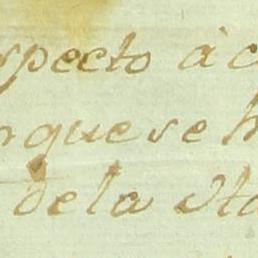 specto à c
nque se h
de la Ha